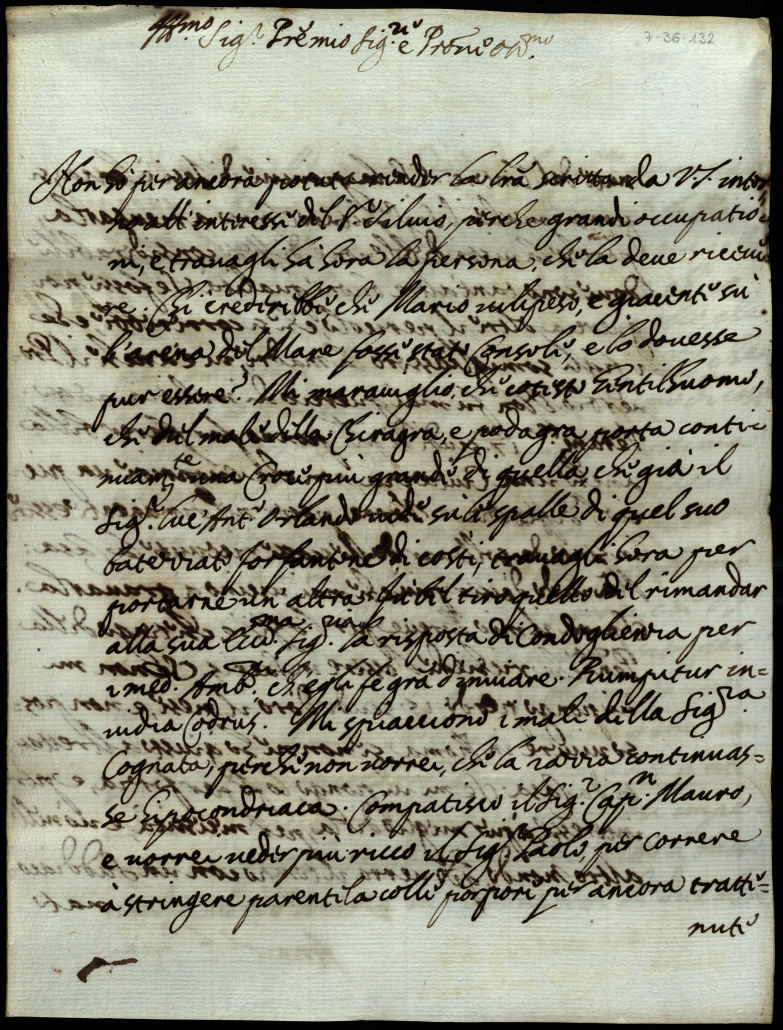 Ill.mo Sig.r Prēmio Sig.re e Prōne Oss.mo
7-36-132
Non hò per ancora potuta render la lrā scritta da V.S. intor
no all' interessi del S.r Silvio, perche grandi occupatio
ni, e travagli ha hora la persona, che la deve riceve
re. Chi crederebbe che Mario vilipeso, e giacente sù
l'arena del Mare fosse stato Console, e lo dovesse
pur essere? Mi maraviglio, che cotesto Gentilhuomo,
che del male della Chiragra, e podagra porta conti=
nuam.te una Croce più grande di quella che già il
Sig.r Ant.o Orlando vede sù le spalle di quel suo
forfantone di costì, travagli hora per
portarne un altra. fù bel tiro quello del rimandar
alla sua Ecc.ma Sig.ra la risposta di Condoglienza per
i med. Amb.ri ch'egli fe gràd'inviare. Rumpitur in=
vidia Codrus. Mi spiacciono i mali della Sig.ra
Cognata, perche non vorrei, che la razza continuas=
se hipocondriaca. Compatisco il Sig.r Cap.n Mauro,
e vorrei veder più ricco il Sig.r Paolo, per correre
à stringere parentela colle porpore per ancora tratte=
nute